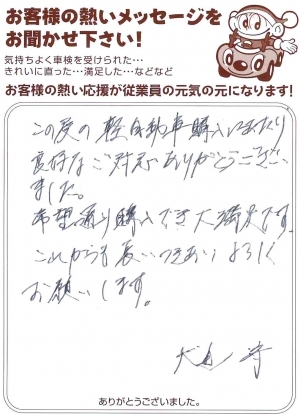 お客様の熱いメッセージを
お聞かせ下さい！
気持ちよく車検を受けられた…
きれいに直った…満足した…などなど
お客様の熱い応援が従業員の元気の元になります！
この度の軽自動車購入にあたり
良好なご対応ありがとうござい
ました。
希望通り購入でき大満足です。
これからも長いつきあいよろしく
お願いします。
ありがとうございました。